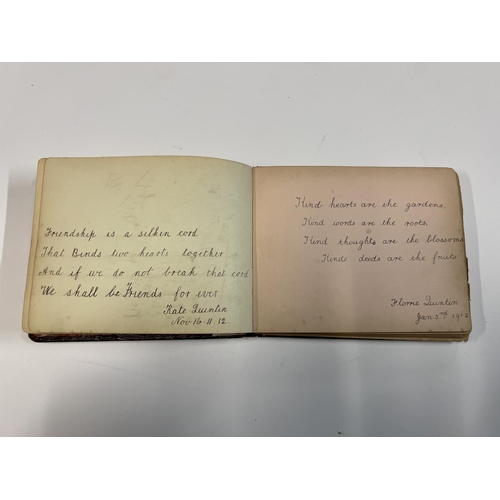 Friendship is a silken cord
That Binds two hearts together
And if we do not break that cord
We shall be Friends for ever
Kate Quintin
Nov 16. 11. 12.
Kind hearts are the gardens,
Kind words are the roots,
Kind thoughts are the blossoms
Kind deeds are the fruits
Florrie Quintin
Jan 2nd